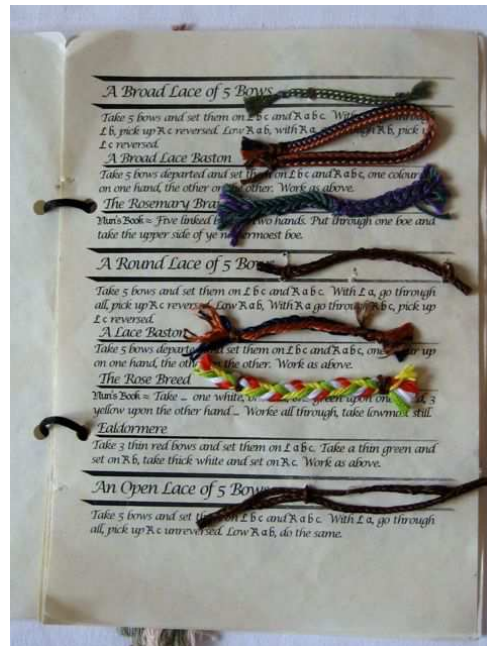 A Broad Lace of 5 Bows
Take 5 bows and set them on L b c and R a b c. With
L b, pick up R c reversed. Low R a b, with R a, through R b, pick
L c reversed.
A Broad Lace Baston
Take 5 bows departed and set them on L b c and R a b c, one colour
on one hand, the other on the other. Work as above.
The Rosemary
Nun's Book = Five linked two hands. Put through one boe and
take the upper side of ye boe.
A Round Lace of 5 Bows
Take 5 bows and set them on L b c and R a b c. With L a, go through
all, pick up R c reversed. Low R a b, With R a go through R b c, pick up
L c reversed.
A Lace Baston
Take 5 bows departed and set them on L b c and R a b c, one up
on one hand, the other on the other. Work as above.
The Rose Breed
Nun's Book = Take _ one white, green upon one 3
yellow upon the other hand _ Worke all through, take lowmost still.
Ealdormere
Take 3 thin red bows and set them on L a b c. Take a thin green and
set on R b, take thick white and set on R c. Work as above.
An Open Lace of 5 Bows
Take 5 bows and set them on L b c and R a b c. With L a, go through
all, pick up R c unreversed. Low R a b, do the same.